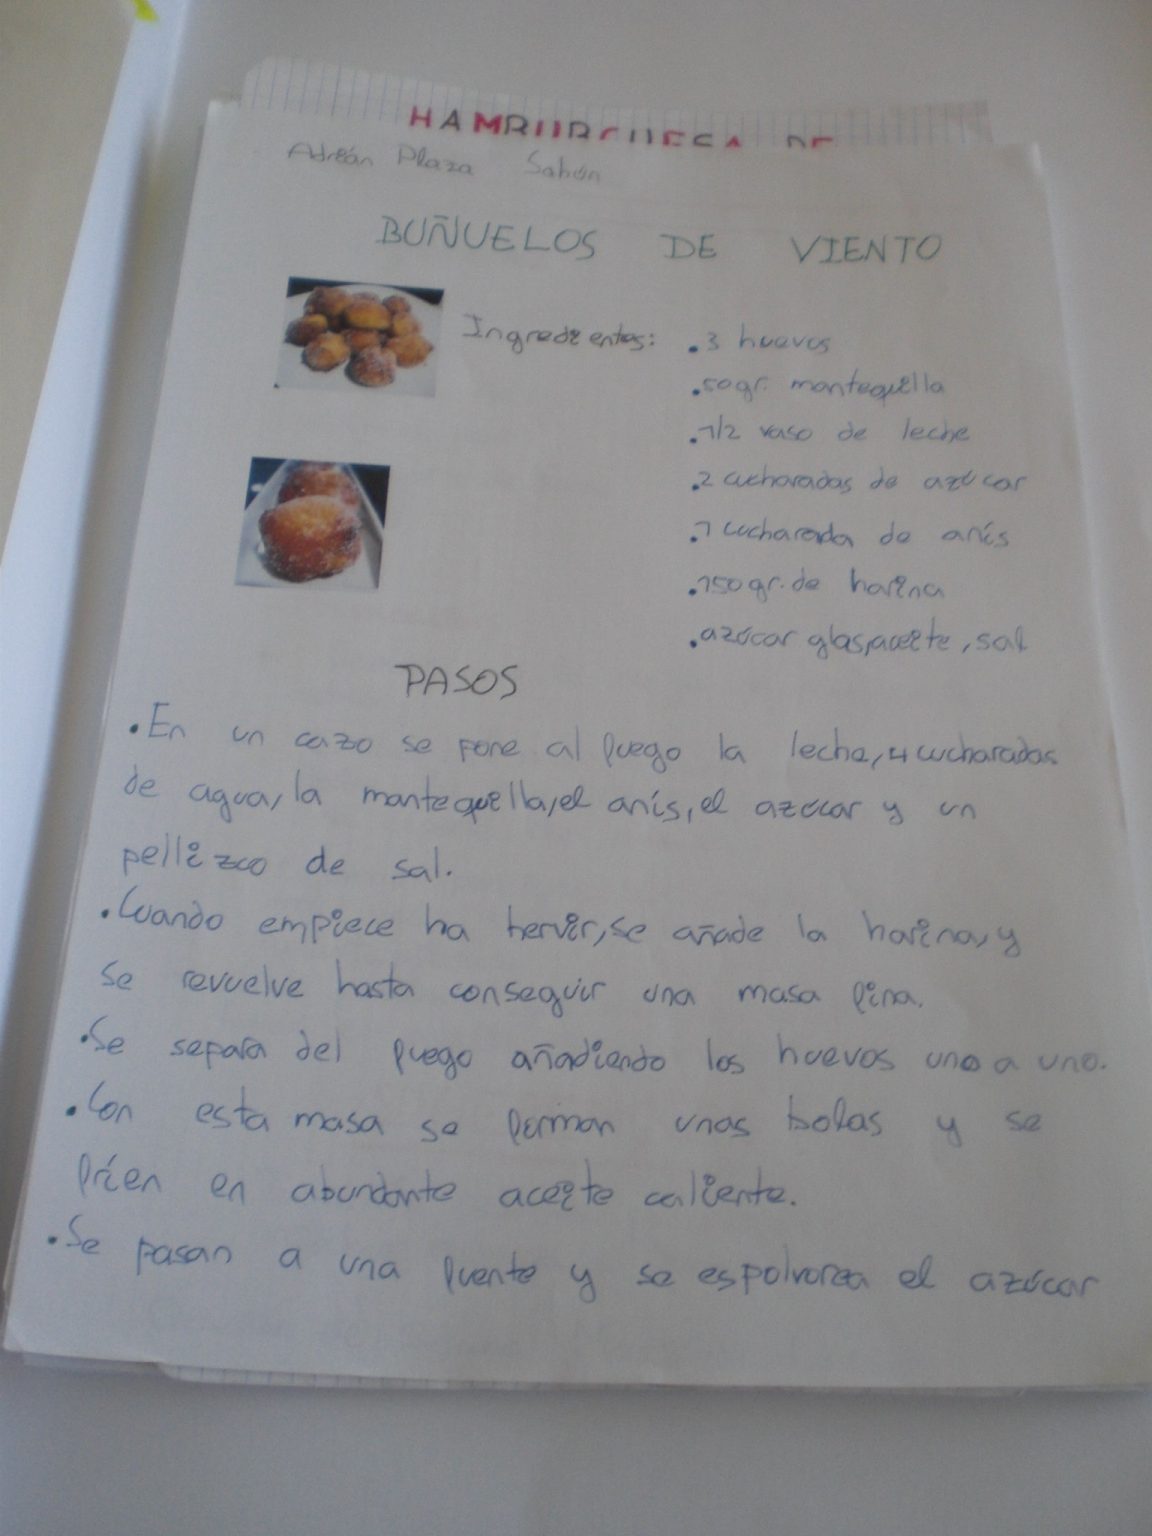 HAMBURGUESA DE
Adrián Plaza Sahún
BUÑUELOS DE VIENTO
Ingredientes: . 3 huevos
. 50gr. mantequilla
. 1/2 vaso de leche
. 2 cucharadas de azúcar
. 1 cucharada de anís
. 150gr. de harina
. azúcar glas, aceite, sal
PASOS
. En un cazo se pone al fuego la leche, 4 cucharadas
de agua, la mantequilla, el anís, el azúcar y un
pellizco de sal.
. Cuando empiece ha hervir, se añade la harina, y
se revuelve hasta conseguir una masa fina.
. Se separa del fuego añadiendo los huevos uno a uno.
. Con esta masa se forman unas bolas y se
fríen en abundante aceite caliente.
. Se pasan a una fuente y se espolvorea el azúcar